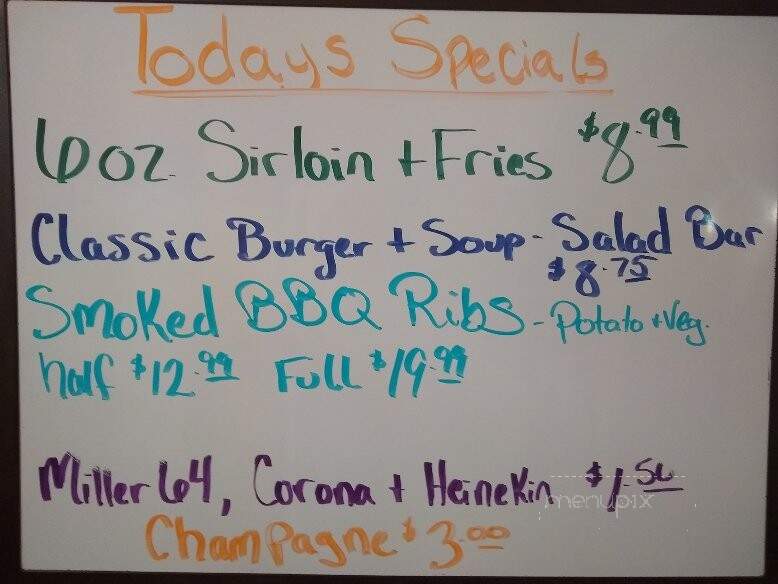 Todays Specials
6oz. Sirloin + Fries $8.99
Classic Burger + Soup - Salad Bar
$8.75
Smoked BBQ Ribs - Potato + Veg.
half $12.99 Full $19.99
Miller 64, Corona + Heinekin $1.50
menupix
Champagne $3.00